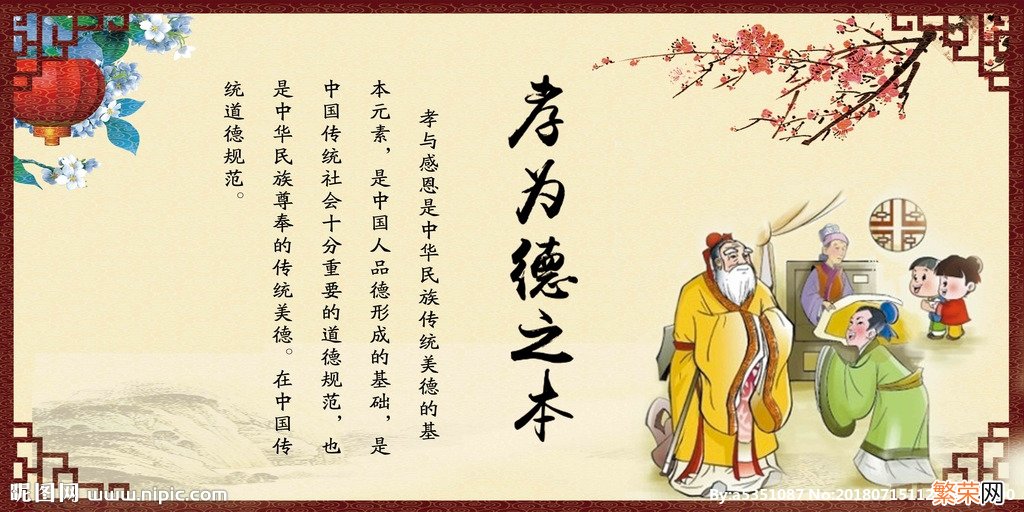 孝为德之本
孝与感恩是中华民族传统美德的基
本元素，是中国人品德形成的基础，是
中国传统社会十分重要的道德规范，也
是中华民族尊奉的传统美德。在中国传
统道德规范。
昵图网 www.nipic.com
By:a5351087 No:2018071511
繁荣网